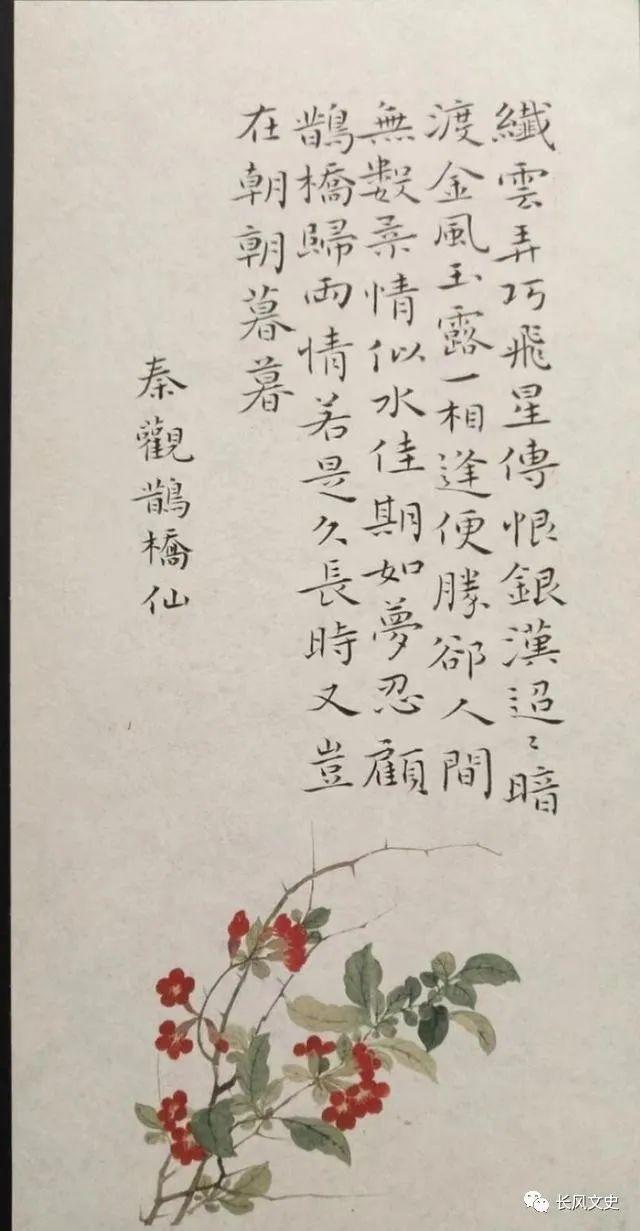 纖雲弄巧飛星傳恨銀漢迢〻暗
渡金風玉露一相逢便勝卻人間
無数柔情似水佳期如夢忍顧
鵲橋歸兩情若是久長時又豈
在朝朝暮暮
秦觀鵲橋仙
长风文史